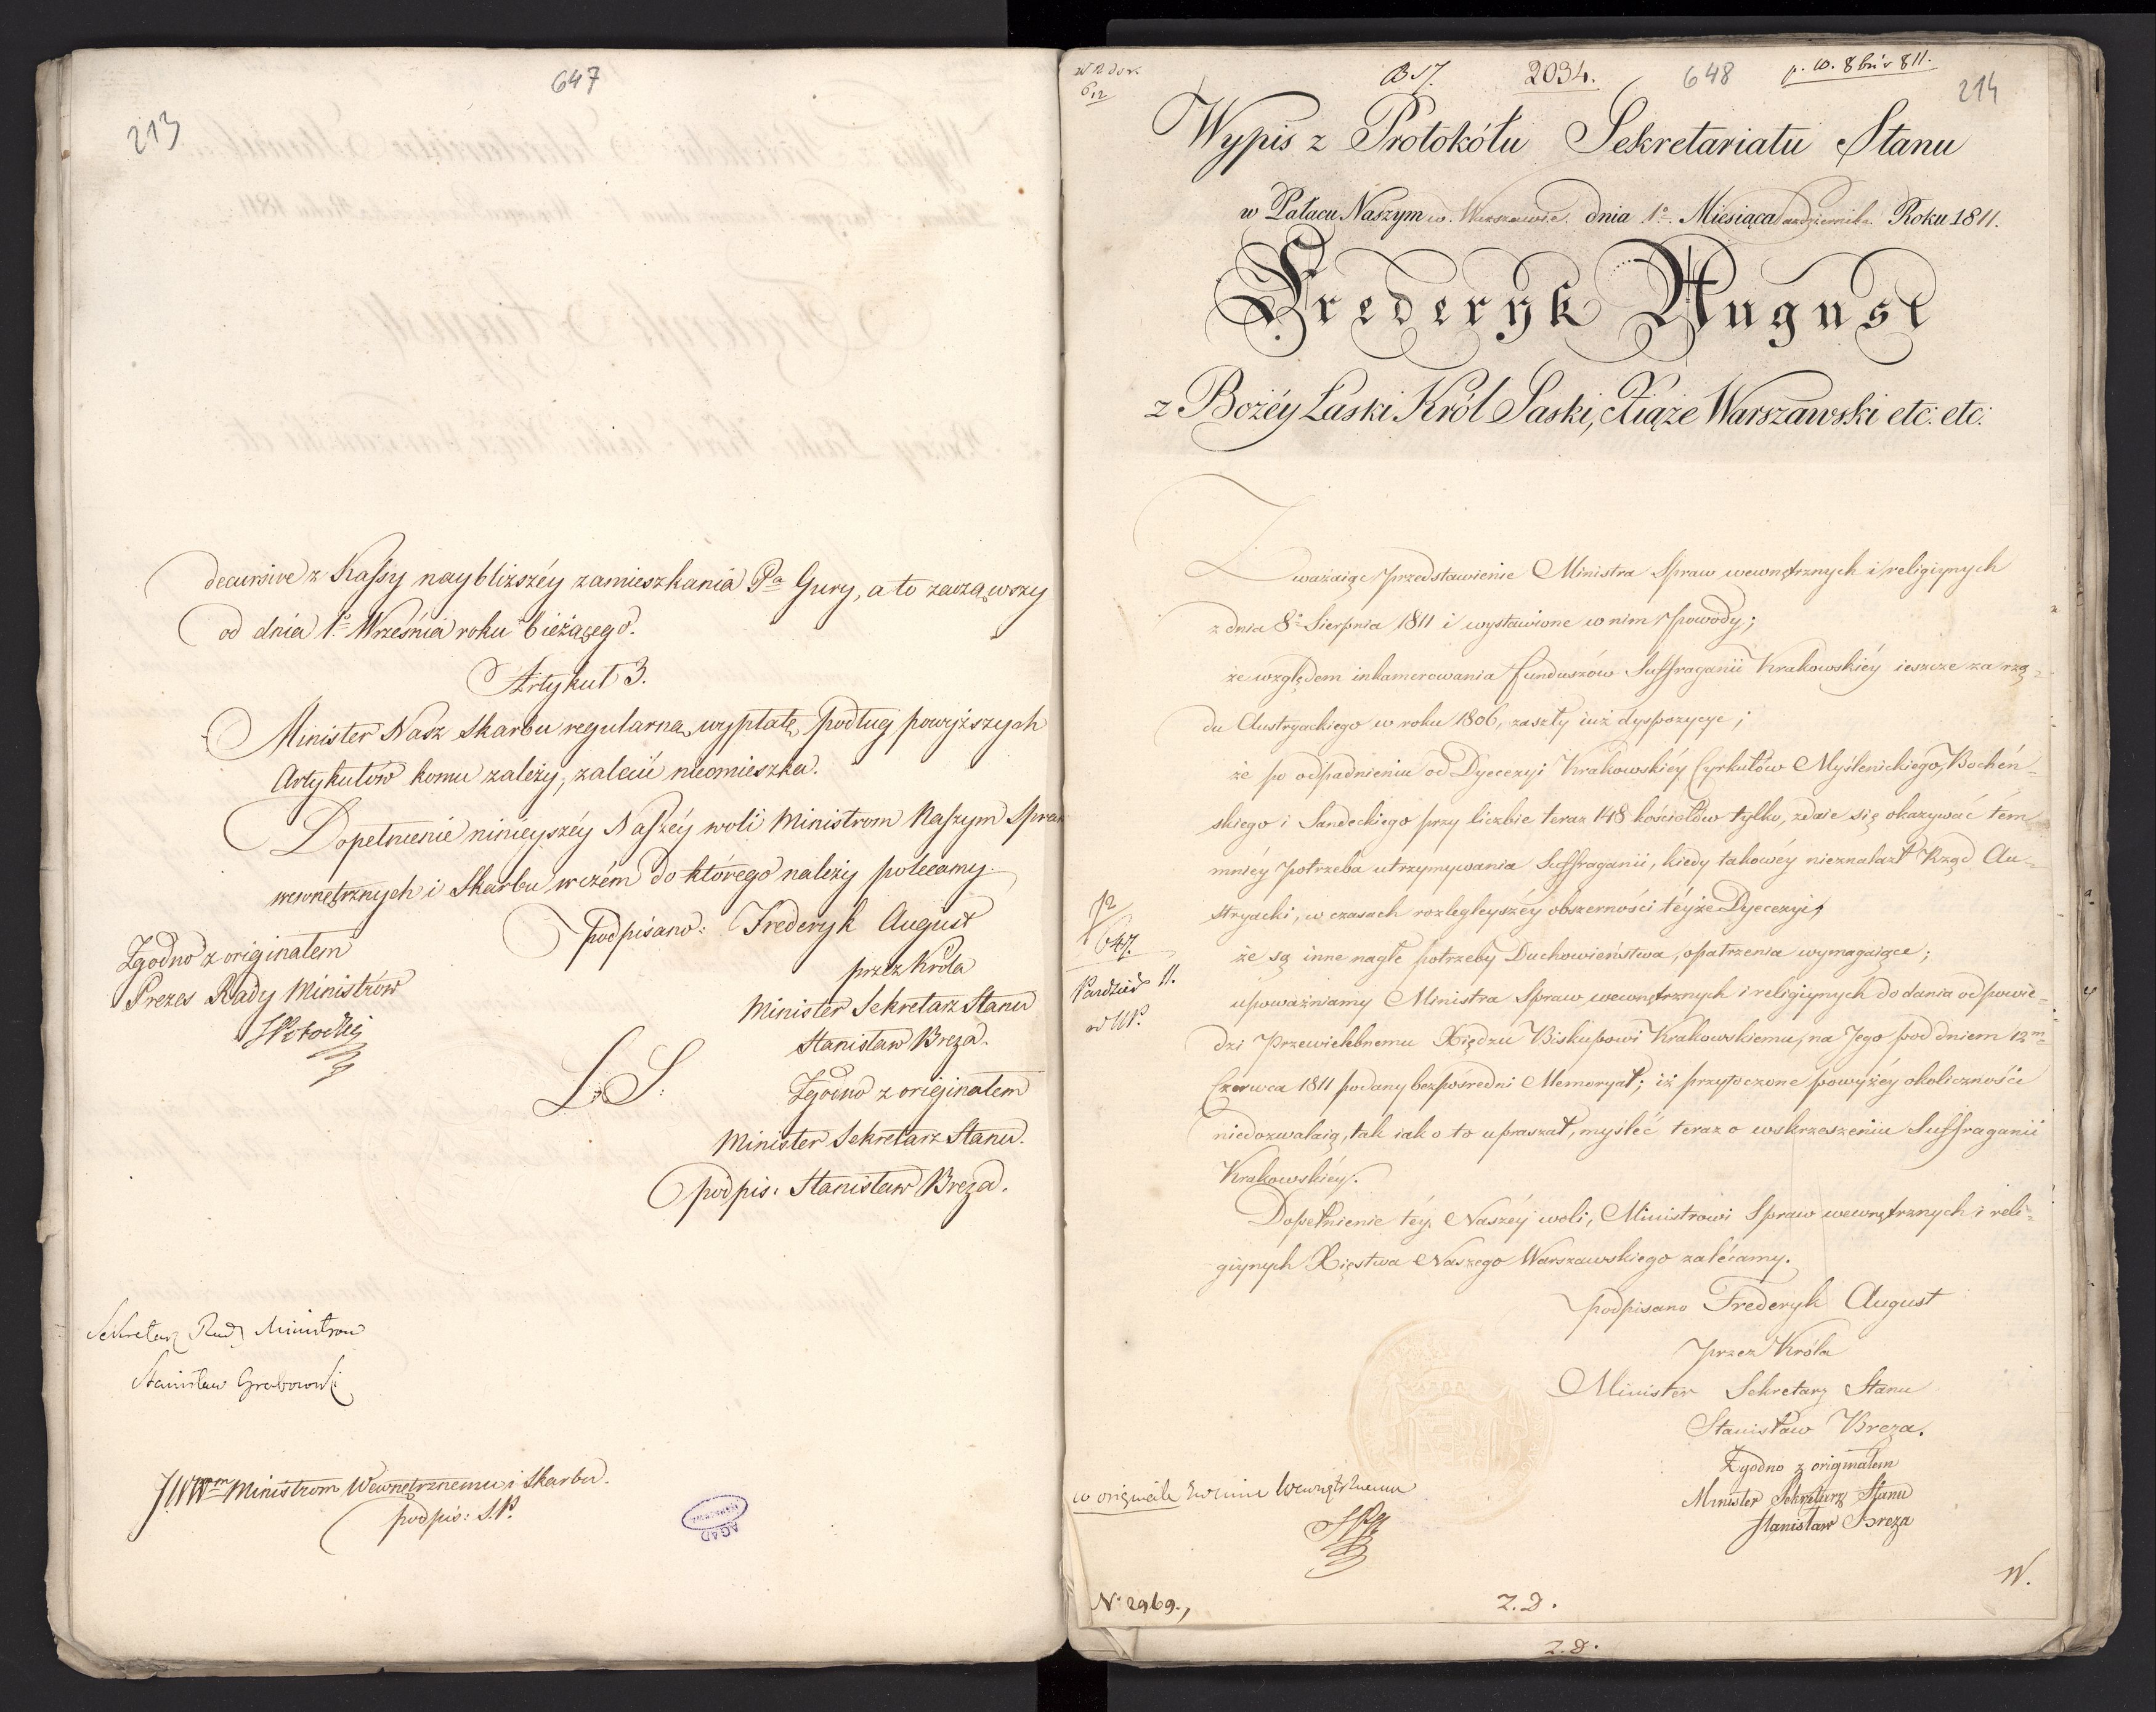 647
213
decursive z Kassy naybliższéy zamieszkania Pa Gury, a to zacząwszy
od dnia 1o Września roku bieżącego.
Artykuł 3.
Minister Nasz Skarbu regularną wypłatę podług powyższych
Artykułów komu należy, zalecić nieomieszka.
Dopełnienie ninieyszéy Naszéy woli Ministrom Naszym Spraw
wewnętrznych i Skarbu w czém do którego należy polecamy.
podpisano: Frederyk August
przez Króla
Minister Sekretarz Stanu
Stanisław Breza.
L: S:
Zgodno z originałem
Minister Sekretarz Stanu.
podpis: Stanisław Breza.
Zgodno z originałem
Prezes Rady Ministrów
Sekretarz Rady Ministrow
Stanisław Grabowski
JWWm Ministrom Wewnętrznemu i Skarbu.
podpis: S.P.
AGAD
2034.
648
p. 10. 8bris 811.
214
Wypis z Protokółu Sekretariatu Stanu
w Pałacu Naszym w Warszawie dnia 1o Miesiąca Października Roku 1811.
Frederyk August
z Bożéy Łaski Król Saski, Xiąże Warszawski etc: etc:
Zważaiąc przedstawienie Ministra Spraw wewnętrznych i religiynych
z dnia 8o Sierpnia 1811 i wystawione w nim powody;
że względem inkamerowania funduszów Suffraganii Krakowskiéy ieszcze za rzą-
du Austryackiego w roku 1806, zaszły iuż dyspozycye;
że po odpadnieniu od Dyecezyi Krakowskiéy Cyrkułów Myślenickiego, Bocheń-
skiego i Sandeckiego przy liczbie teraz 148 kościołów tylko, zdaie się okazywać tém
mniéy potrzeba utrzymywania Suffraganii, kiedy takowéy nieznalazł Rząd Au-
stryacki, w czasach rozległeyszéy obszerności téyże Dyecezyi;
że są inne nagłe potrzeby Duchowieństwa, opatrzenia wymagaiące;
upoważniamy Ministra Spraw wewnętrznych i religiynych do dania odpowie-
dzi Przewielebnemu Xiędzu Biskupowi Krakowskiemu, na Jego pod dniem 12m
Czerwca 1811 podany bezpośredni Memoryał; iż przytoczone powyżéy okoliczności
niedozwalaią, tak iak o to upraszał, myśleć teraz o wskrzeszeniu Suffraganii
Krakowskiéy.
Dopełnienie téy Naszéy woli, Ministrowi Spraw wewnętrznych i reli-
giynych Xięstwa Naszego Warszawskiego zalécamy.
podpisano Frederyk August
przez Króla
Minister Sekretarz Stanu
Stanisław Breza.
Zgodno z originałem
Minister Sekretarz Stanu
Stanisław Breza
647.
w originale Wewnętrznemu
W.
No 2969.,
Z. D.
Z. D.